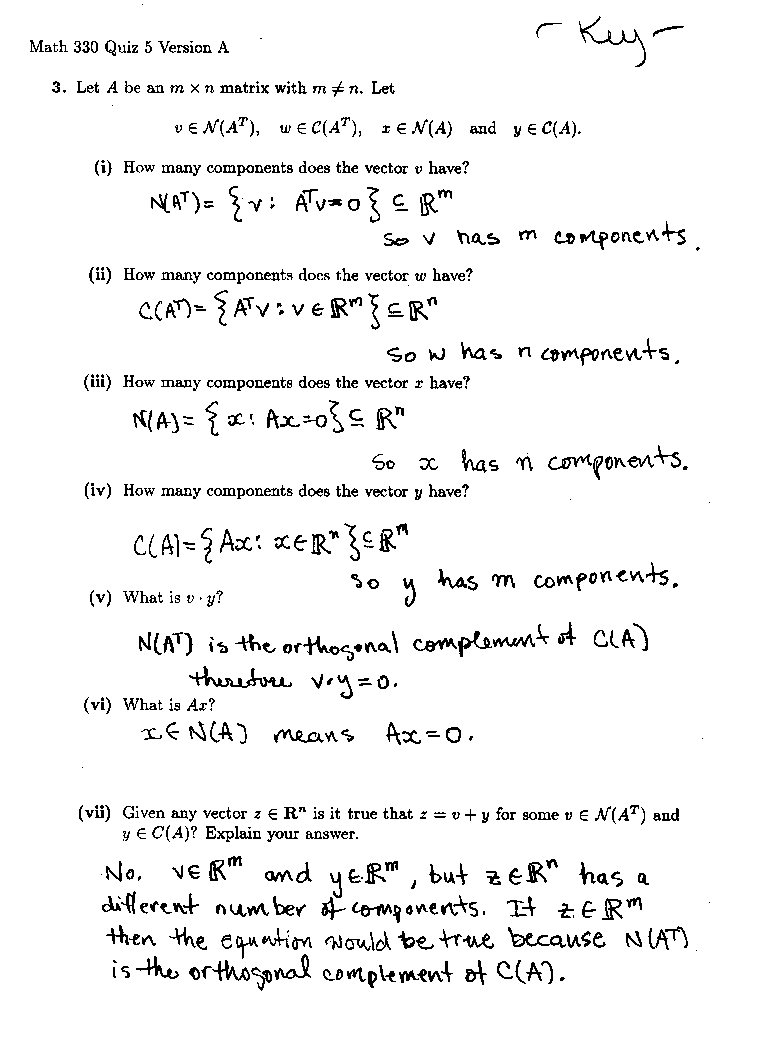 - Key -
Math 330 Quiz 5 Version A
3. Let A be an m × n matrix with m ≠ n. Let
v ∈ N(Aᵀ), w ∈ C(Aᵀ), x ∈ N(A) and y ∈ C(A).
(i) How many components does the vector v have?
N(Aᵀ) = { v : Aᵀv = 0 } ⊆ ℝᵐ
So v has m components.
(ii) How many components does the vector w have?
C(Aᵀ) = { Aᵀv : v ∈ ℝᵐ } ⊆ ℝⁿ
So w has n components.
(iii) How many components does the vector x have?
N(A) = { x : Ax = 0 } ⊆ ℝⁿ
So x has n components.
(iv) How many components does the vector y have?
C(A) = { Ax : x ∈ ℝⁿ } ⊆ ℝᵐ
So y has m components.
(v) What is v · y?
N(Aᵀ) is the orthogonal complement of C(A)
therefore v·y = 0.
(vi) What is Ax?
x ∈ N(A) means Ax = 0.
(vii) Given any vector z ∈ Rⁿ is it true that z = v + y for some v ∈ N(Aᵀ) and
y ∈ C(A)? Explain your answer.
No. v ∈ ℝᵐ and y ∈ ℝᵐ, but z ∈ ℝⁿ has a
different number of components. If z ∈ ℝᵐ
then the equation would be true because N(Aᵀ)
is the orthogonal complement of C(A).